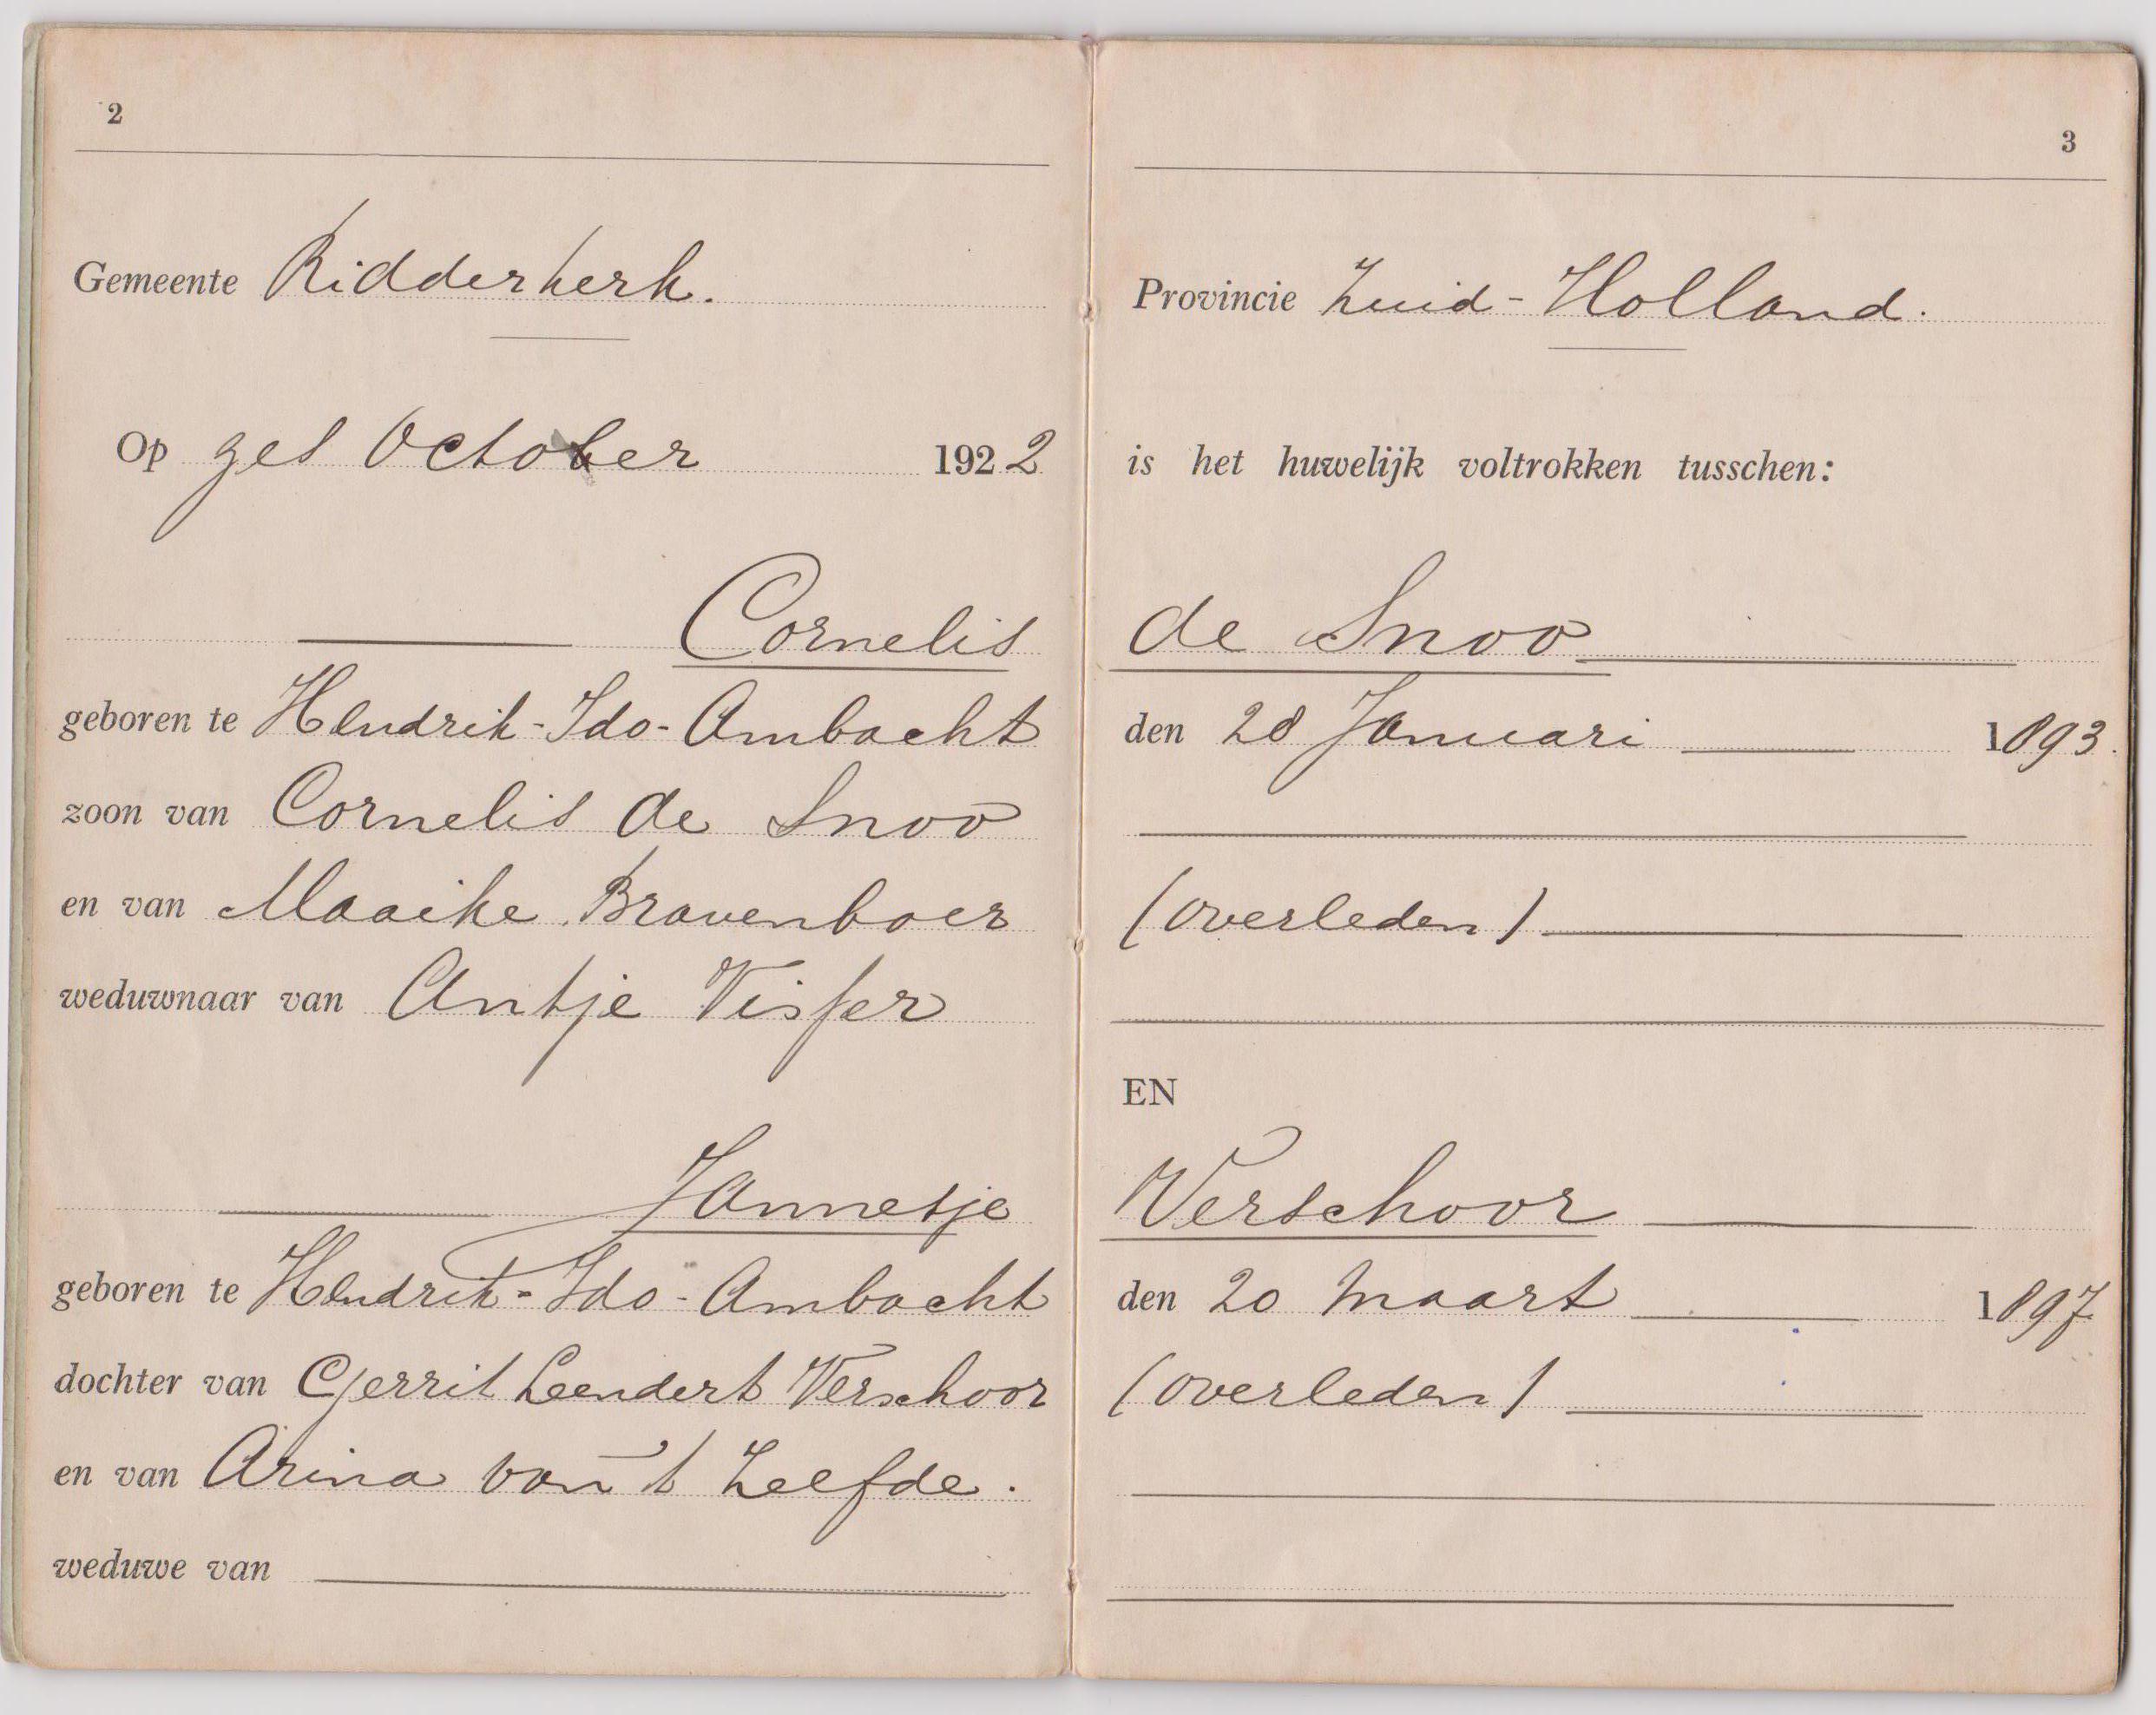 2
Gemeente Ridderkerk.
Op October 1922
Cornelis
geboren te Hendrik-Ido-Ambacht
zoon van Cornelis de Snoo
en van Maaike Bravenboer
weduwnaar van Antje Visser
Jannetje
geboren te Hendrik-Ido-Ambacht
dochter van Gerrit Leendert Verschoor
en van Arina van 't Zelfde.
weduwe van
3
Provincie Zuid-Holland.
is het huwelijk voltrokken tusschen:
de Snoo
den 28 Januari 1893.
(overleden)
EN
Verschoor
den 20 Maart 1897
(overleden)